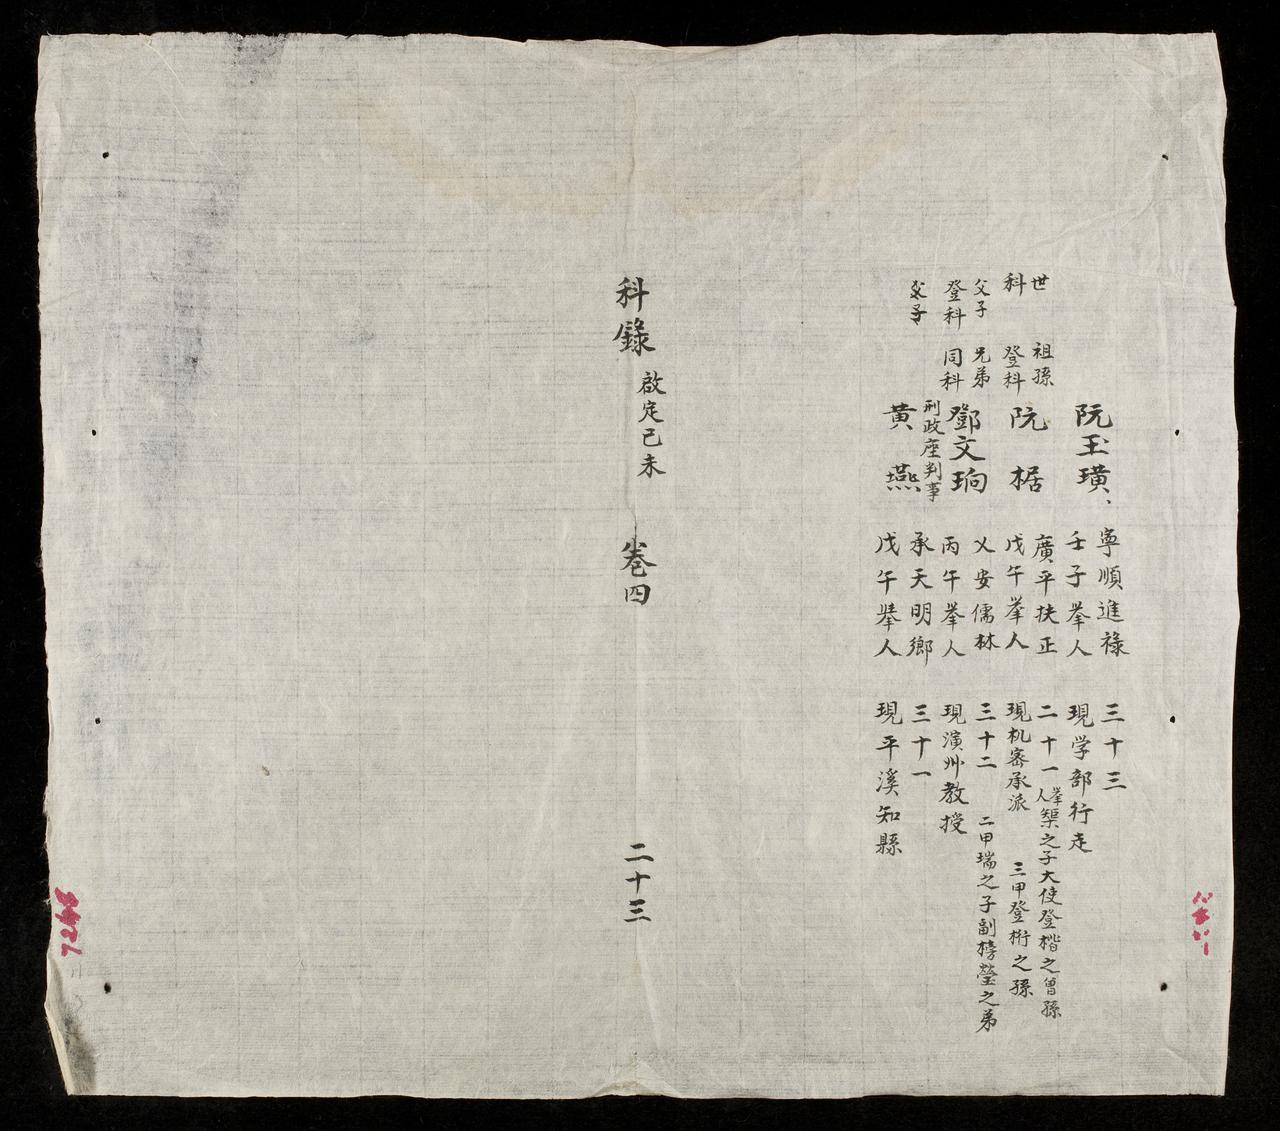 阮玉璜、
寧順進祿 三十三
壬子举人 現学部行走
世科 祖孫登科
阮椐
廣平扶正 二十一 举人榘之子大使登楷之曾孫
戊午举人 現机密承派 三甲登桁之孫
父子登科 兄弟同科
鄧文珦
乂安儒林 三十二 二甲瑞之子副榜瑩之弟
丙午举人 現演州教授
父子
刑政座判事
黃燕
承天明鄉 三十一
戊午举人 現平溪知縣
科錄 啟定己未 卷四 二十三